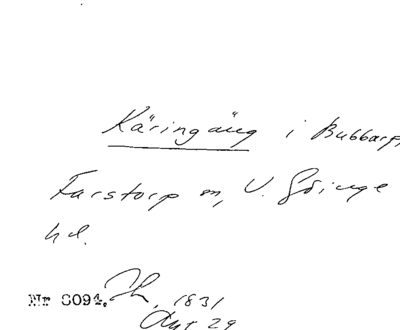 Käringäng i Bubbarp,
Farstorp sn, V. Göinge
hd.
Nr 8094. , 1831
Akt 29